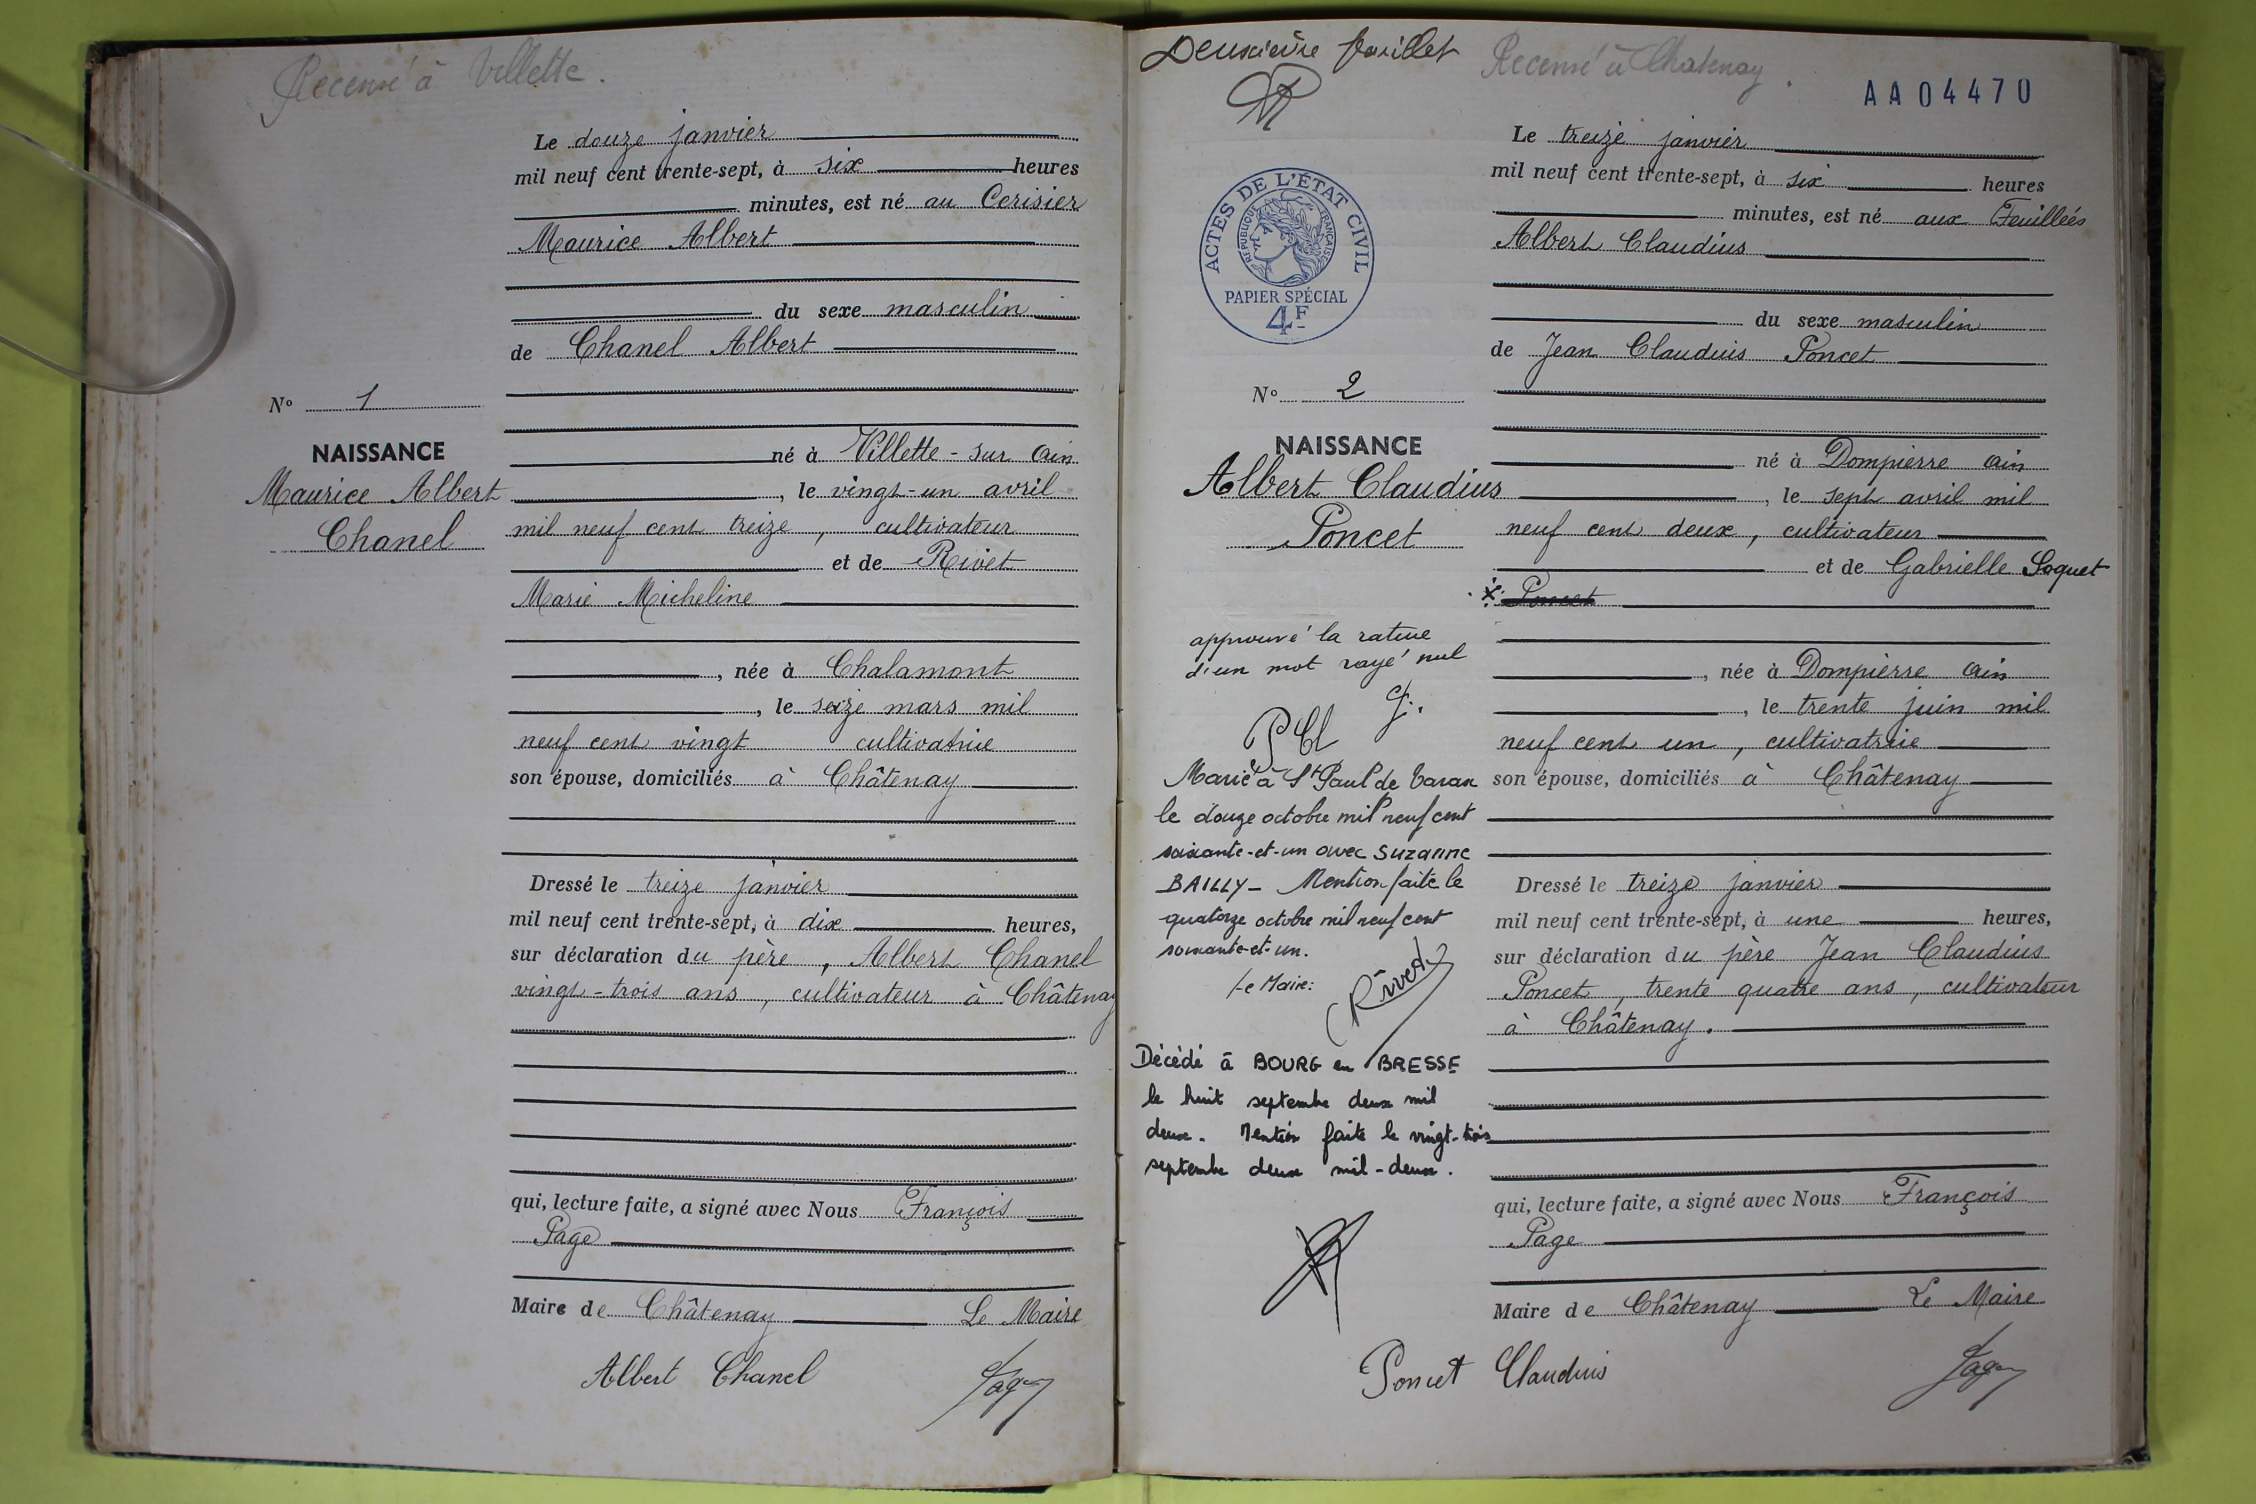 Recensé à Villette.
Le douze janvier
mil neuf cent trente-sept, à six heures
minutes, est né au Cerisier
Maurice Albert
du sexe masculin
de Chanel Albert
N° 1
NAISSANCE
Maurice Albert
Chanel
né à Villette-sur Ain
, le vingt-un avril
mil neuf cent treize, cultivateur
et de Rivet
Marie Micheline
, née à Chalamont
, le seize mars mil
neuf cent vingt cultivatrice
son épouse, domiciliés à Châtenay
Dressé le treize janvier
mil neuf cent trente-sept, à dix heures,
sur déclaration du père, Albert Chanel
vingt-trois ans, cultivateur à Châtenay
qui, lecture faite, a signé avec Nous François
Page
Maire de Châtenay Le Maire
Albert Chanel Page
Deuxième feuillet
Recensé à Chatenay.
AA04470
ACTES DE L'ÉTAT CIVIL
RÉPUBLIQUE FRANÇAISE
PAPIER SPÉCIAL
4F
Le treize janvier
mil neuf cent trente-sept, à six heures
minutes, est né aux Feuillées
Albert Claudius
du sexe masculin
de Jean Claudius Poncet
N° 2
NAISSANCE
Albert Claudius
Poncet
né à Dompierre Ain
, le sept avril mil
neuf cent deux, cultivateur
et de Gabrielle Soquet
Poncet
approuvé la rature
d'un mot rayé nul
, née à Dompierre Ain
, le trente juin mil
neuf cent un, cultivatrice
son épouse, domiciliés à Châtenay
Marié à St Paul de Varax
le douze octobre mil neuf cent
soixante-et-un avec Suzanne
BAILLY - Mention faite le
quatorze octobre mil neuf cent
soixante-et-un.
Le Maire:
Rivet
Décédé à BOURG en BRESSE
le huit septembre deux mil
deux. Mention faite le vingt-trois
septembre deux mil-deux.
Dressé le treize janvier
mil neuf cent trente-sept, à une heures,
sur déclaration du père Jean Claudius
Poncet, trente quatre ans, cultivateur
à Châtenay.
qui, lecture faite, a signé avec Nous François
Page
Maire de Châtenay Le Maire
Poncet Claudius Page